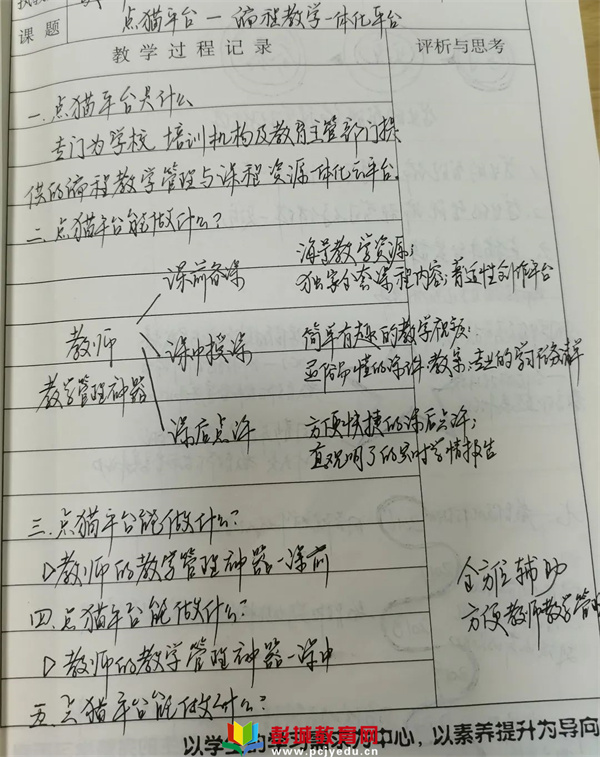 课 题
点猫平台 — 编程教学一体化平台
教 学 过 程 记 录
评析与思考
一.点猫平台是什么
专门为学校、培训机构及教育主管部门提
供的编程教学管理与课程资源一体化云平台.
二.点猫平台能做什么?
课前备课
海量教学资源;
独家全套课程内容;普适性创作平台
教师
教学管理神器
课中授课
简单有趣的教学视频;
通俗易懂的课件、教案;专业的学习任务单
课后点评
方便快捷的课后点评;
直观明了的实时学情报告
三.点猫平台能做什么?
教师的教学管理神器—课前
四.点猫平台能做什么?
教师的教学管理神器—课中
五.点猫平台能做什么?
全方位辅助
方便教师教学管理
以学生的学习需求为中心,以素养提升为导向
彭城教育网
www.pcjyedu.cn